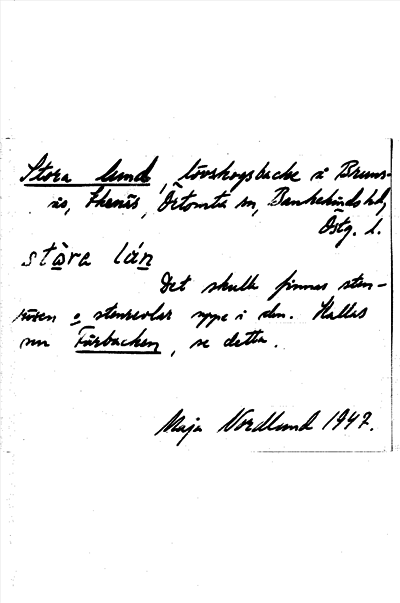 Stora lund, lövskogsbacke i Bruns-
näs, Skenäs, Östomta sn, Bankekinds hd,
Östg. l.
stòra lán
Det skulle finnas sten-
rösen o stenrevlar uppe i den. Kallas
nu Fårbacken, se detta.
Maja Nordlund 1947.